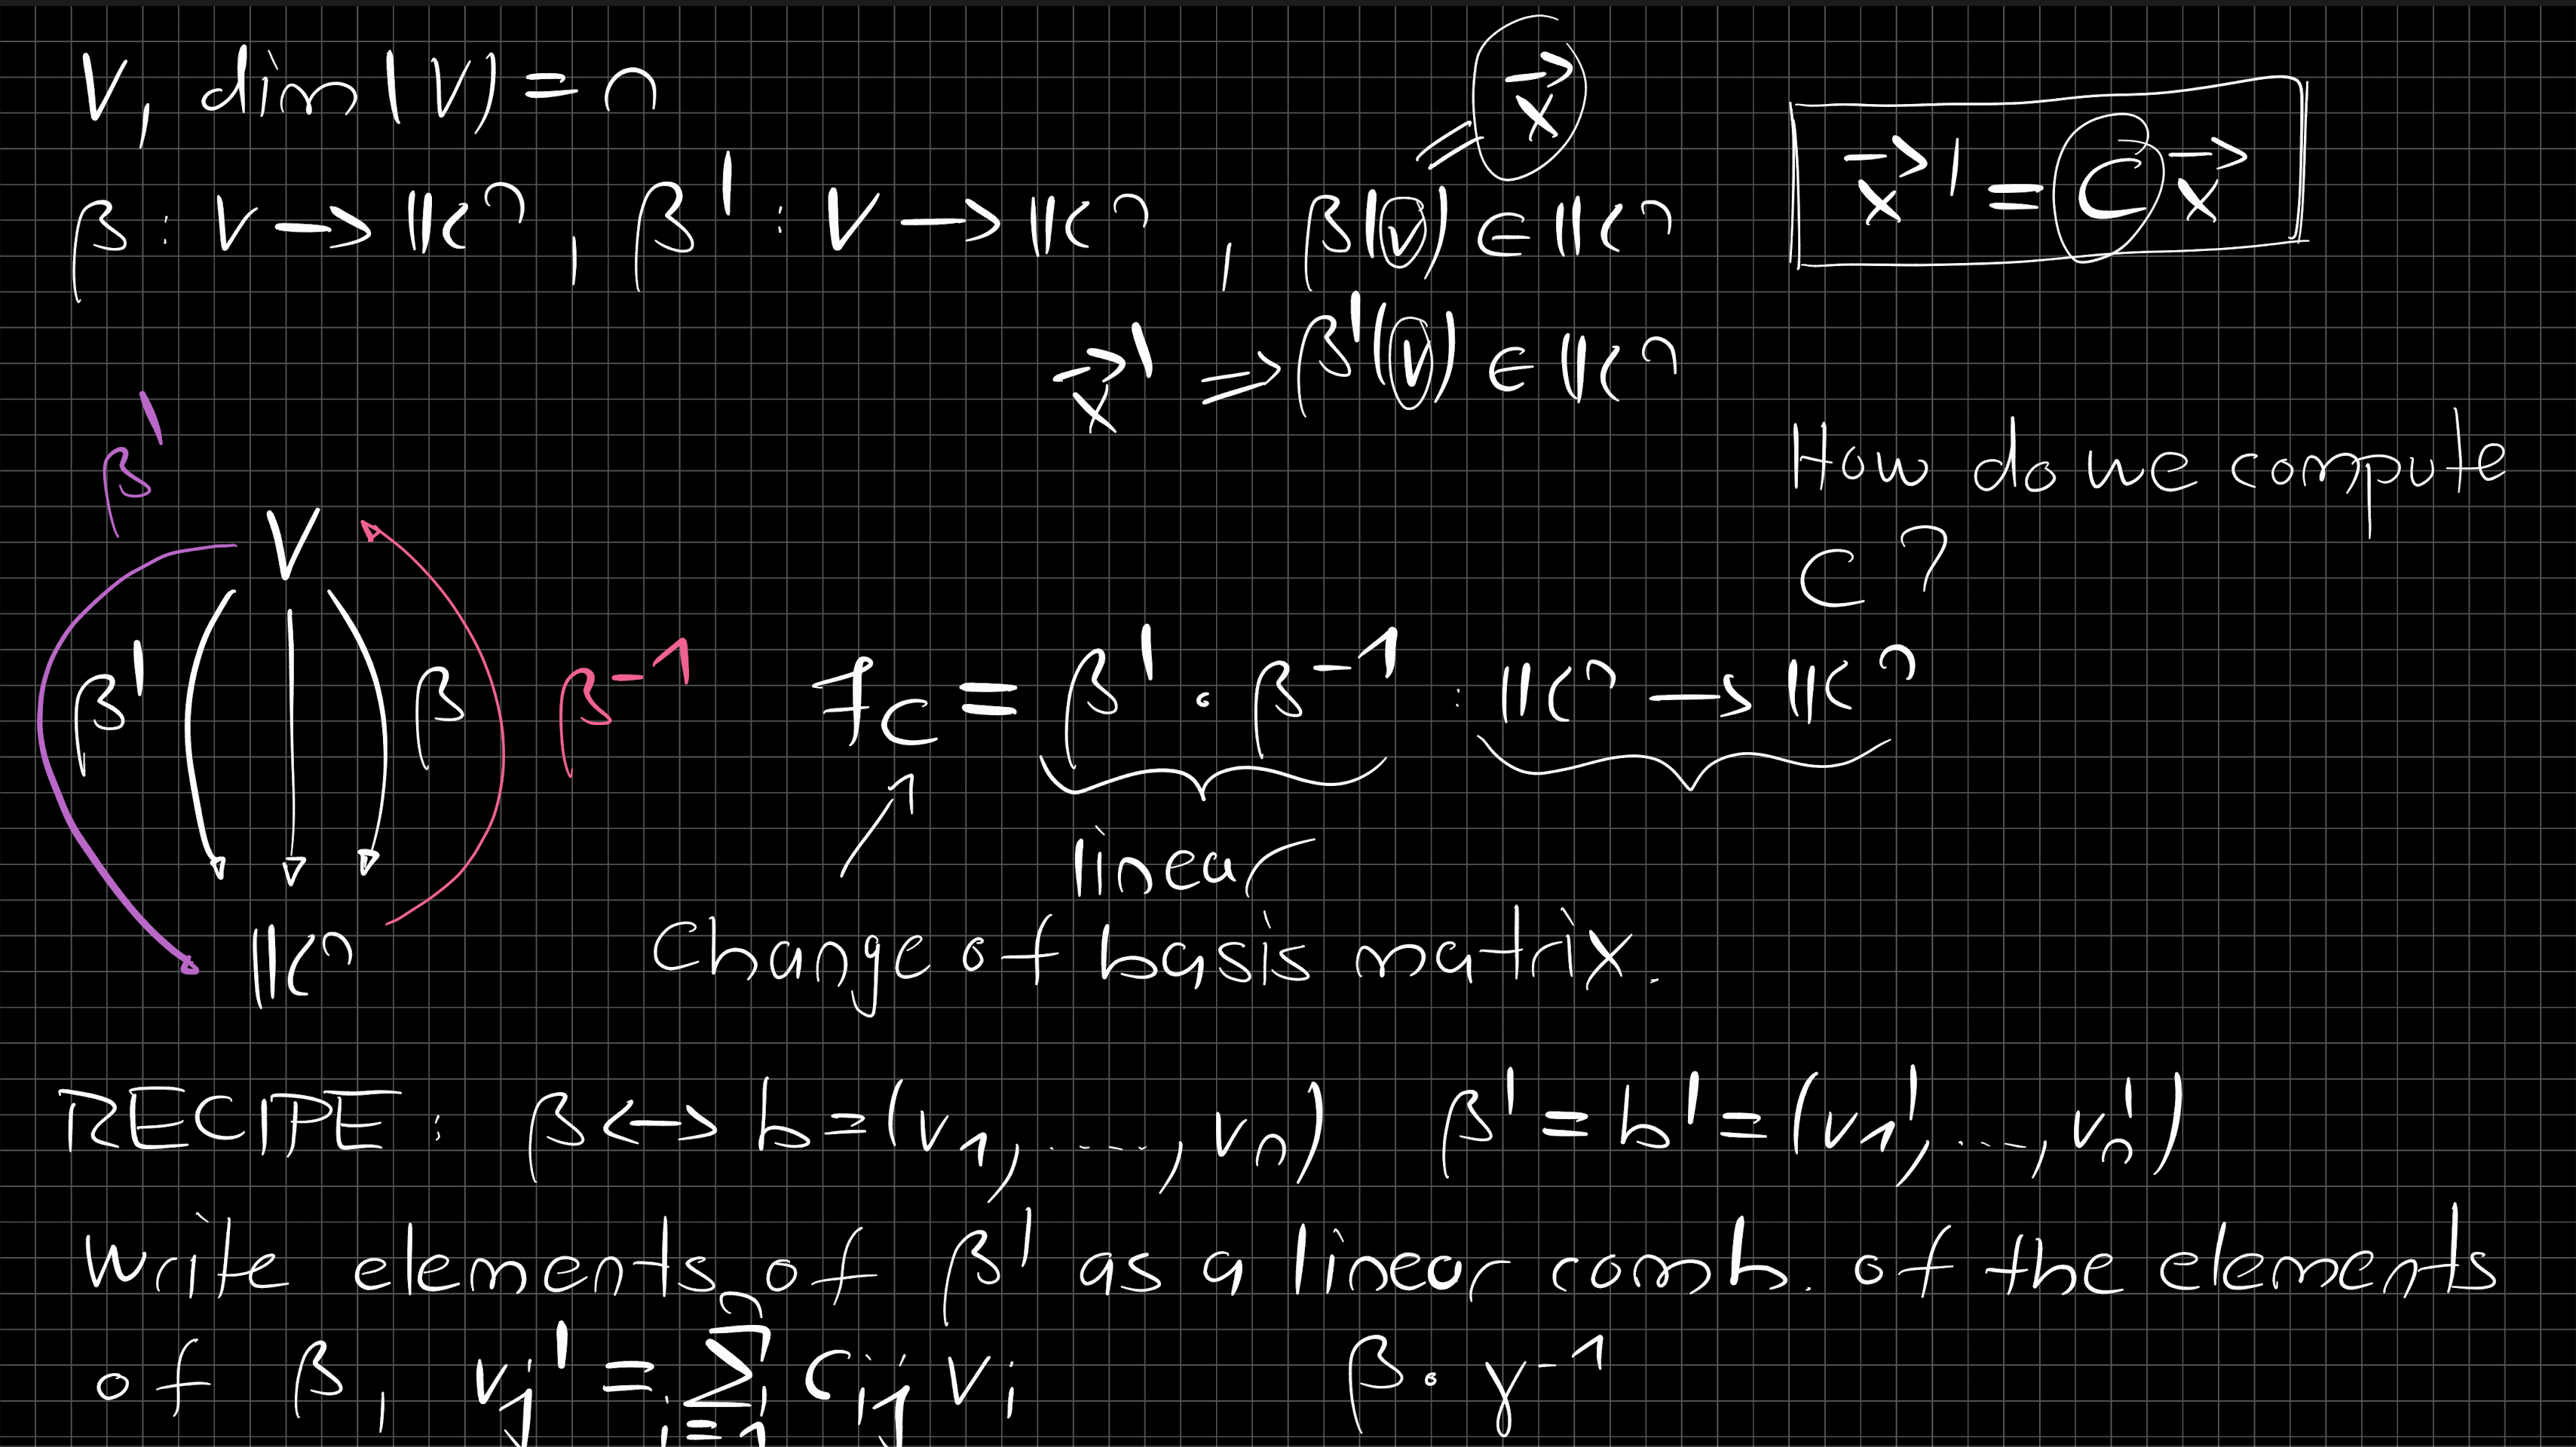 V, dim(V) = n
= x⃗
x⃗' = C x⃗
β : V → 𝕂ⁿ, β' : V → 𝕂ⁿ, β(v) ∈ 𝕂ⁿ
x⃗' = β'(v) ∈ 𝕂ⁿ
How do we compute
C?
β'
V
β' β β⁻¹
f_C = β' ∘ β⁻¹ : 𝕂ⁿ → 𝕂ⁿ
linear
𝕂ⁿ
Change of basis matrix.
RECIPE: β ↔ b = (v₁, ...., vₙ) β' = b' = (v₁', ..., vₙ')
Write elements of β' as a linear comb. of the elements
of β, vⱼ' = ∑ⁿᵢ₌₁ cᵢⱼ vᵢ β ∘ γ⁻¹